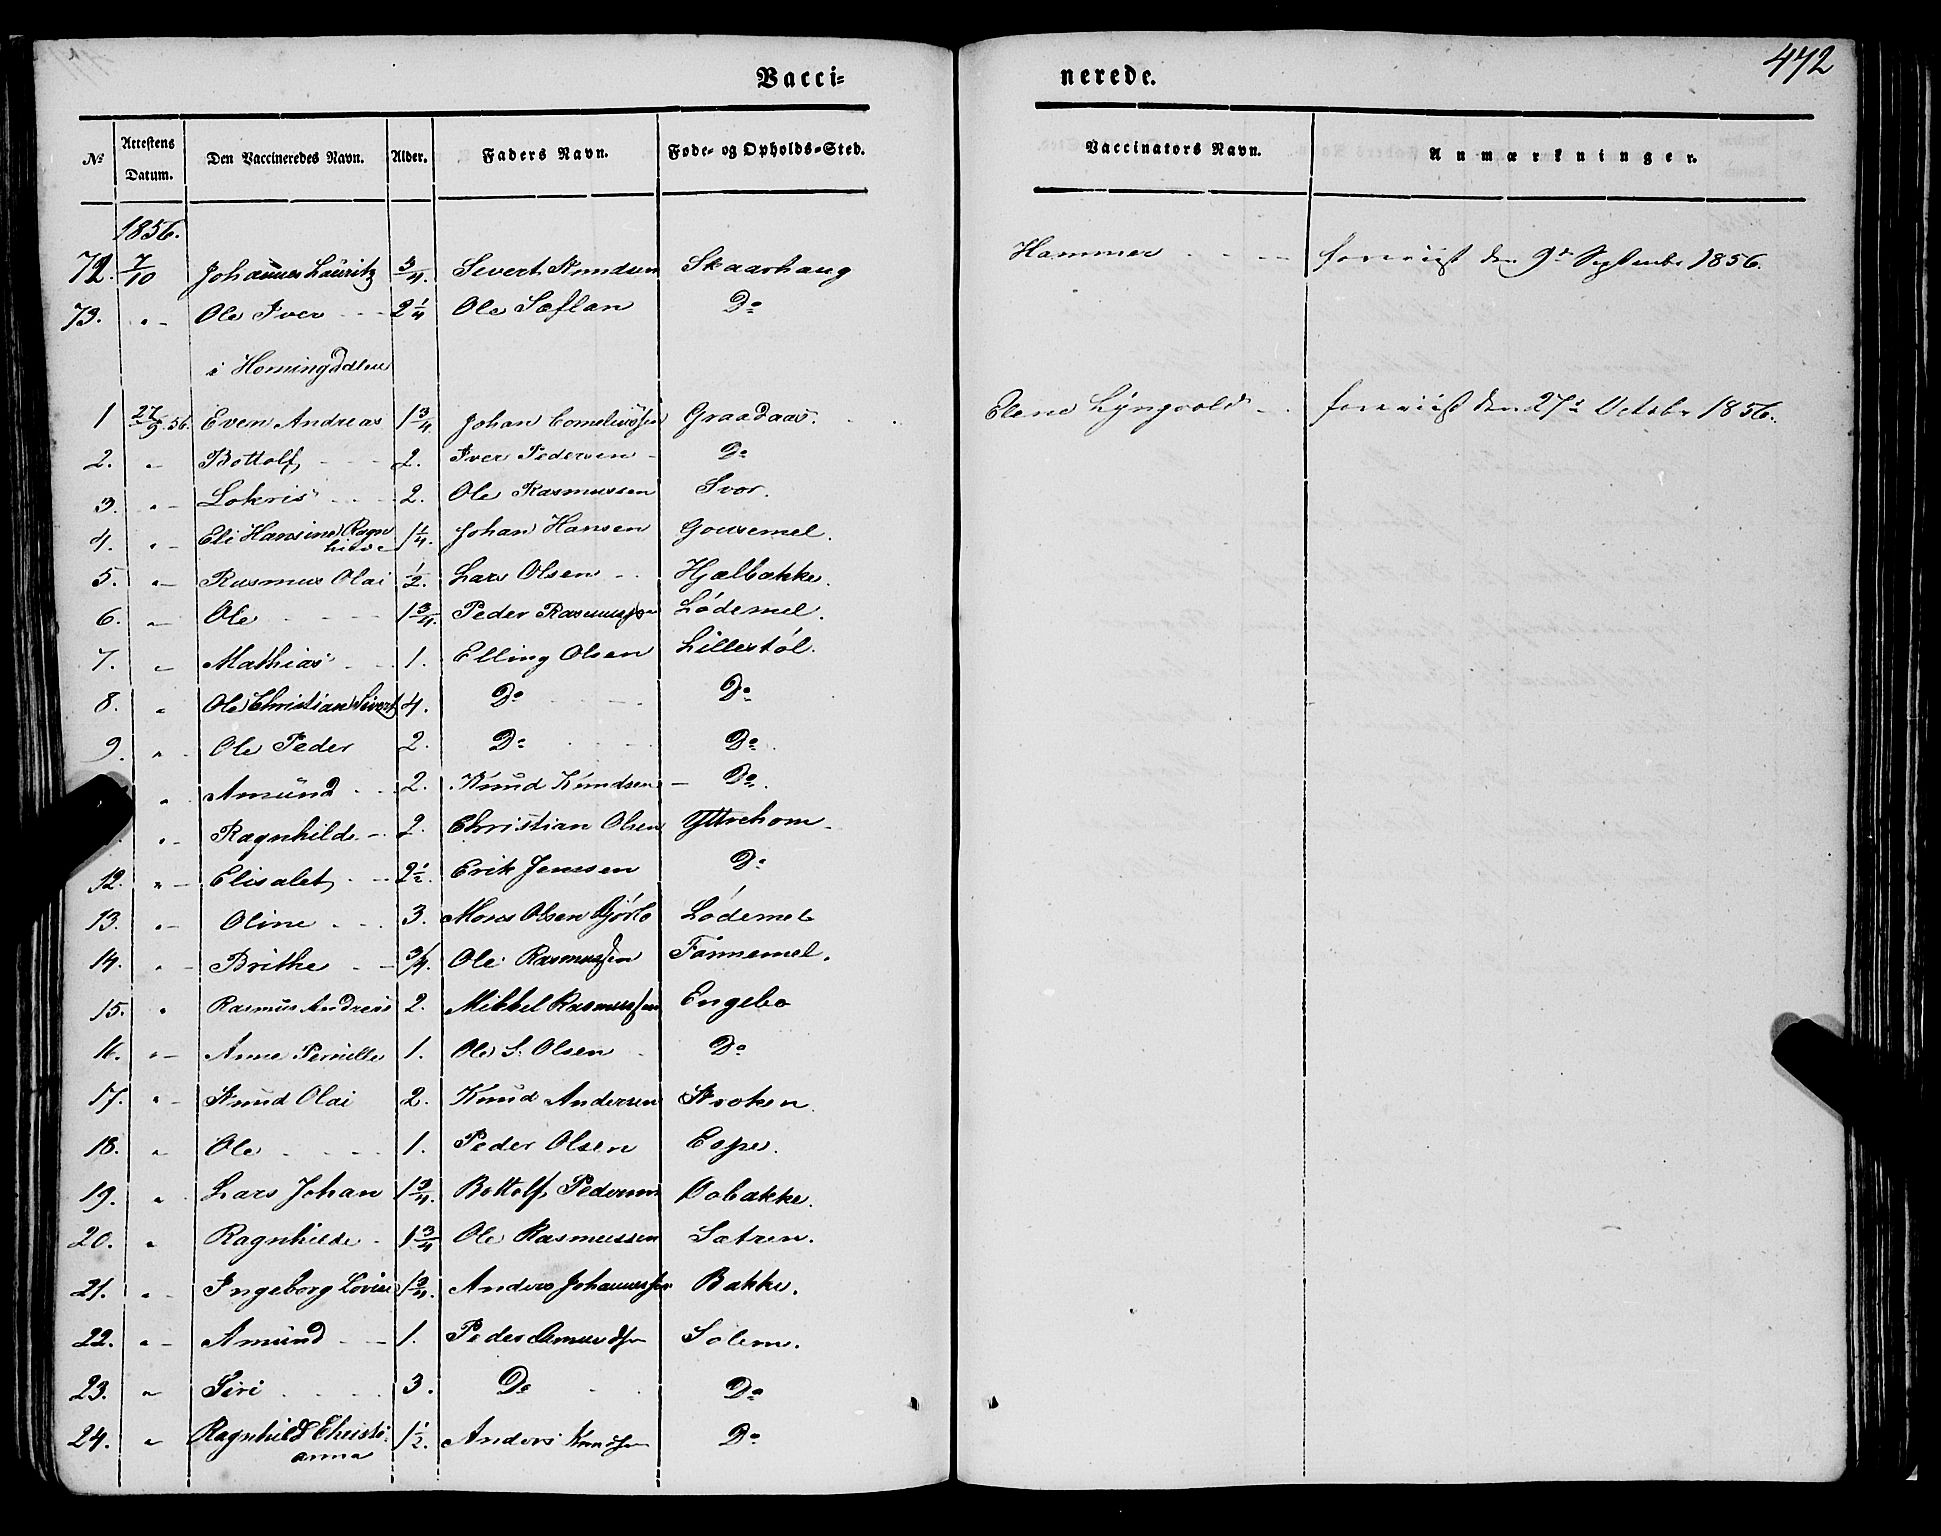 472
Vacci=
nerede.
No Attestens Datum. Den Vaccineredes Navn. Alder. Faders Navn. Føde- og Opholds-Sted. Vaccinators Navn. Anmærkninger.
1856.
72. 7/10 Johannes Lauritz 3/4. Sivert Knudsen Skaarhaug Hammer den 9de September 1856.
73. " Ole Iver 2 1/4 Ole Sæflan Do
i Horningdalen
1 27/9 56. Even Andreas 1 3/4. Johan Corneliussen Graadaas. Elene Lyngvold den 27de October 1856.
2. " Bottolf 2. Iver Pedersen Do
3. " Lokris 2. Ole Rasmussen Svor.
4. " Eli Hansine Ragn
hilde 1/4. Johan Hansen Gousemel.
5. " Rasmus Olai 1/2. Lars Olsen Hjælbakke.
6. " Ole 1 3/4. Peder Rasmussen Lødemel.
7. " Mathias 1. Elling Olsen Lillestøl.
8. " Ole Christian Sivert 4. Do Do
9. " Ole Peder 2. Do Do
" Amund 2. Knud Knudsen Do
" Ragnhilde 2. Christian Olsen Yttrehorn
12. " Elisabet 2 1/2. Erik Jenssen Do
13. " Oline 3. Mons Olsen Lødemel
14. " Brithe 3/4. Ole Rasmussen Tannemel.
15. " Rasmus Andreas 2. Mikkel Rasmussen Engebo
16. " Anne Pernille 1. Ole S. Olsen Do
17. " Knud Olai 2. Knud Andersen Kroken
18. " Ole 1. Peder Olsen Espe.
19. " Lars Johan 1 3/4. Bottolf Pedersen Oobakke.
20. " Ragnhilde 1 3/4 Ole Rasmussen Sætren.
21. " Ingeborg Lovise 1 3/4. Anders Johannessen Bakke.
22. " Amund 1. Peder Amundsen Solem.
23. " Siri 3. Do Do
24. " Ragnhild Christi
anna 1 1/2. Anders Knudsen Do